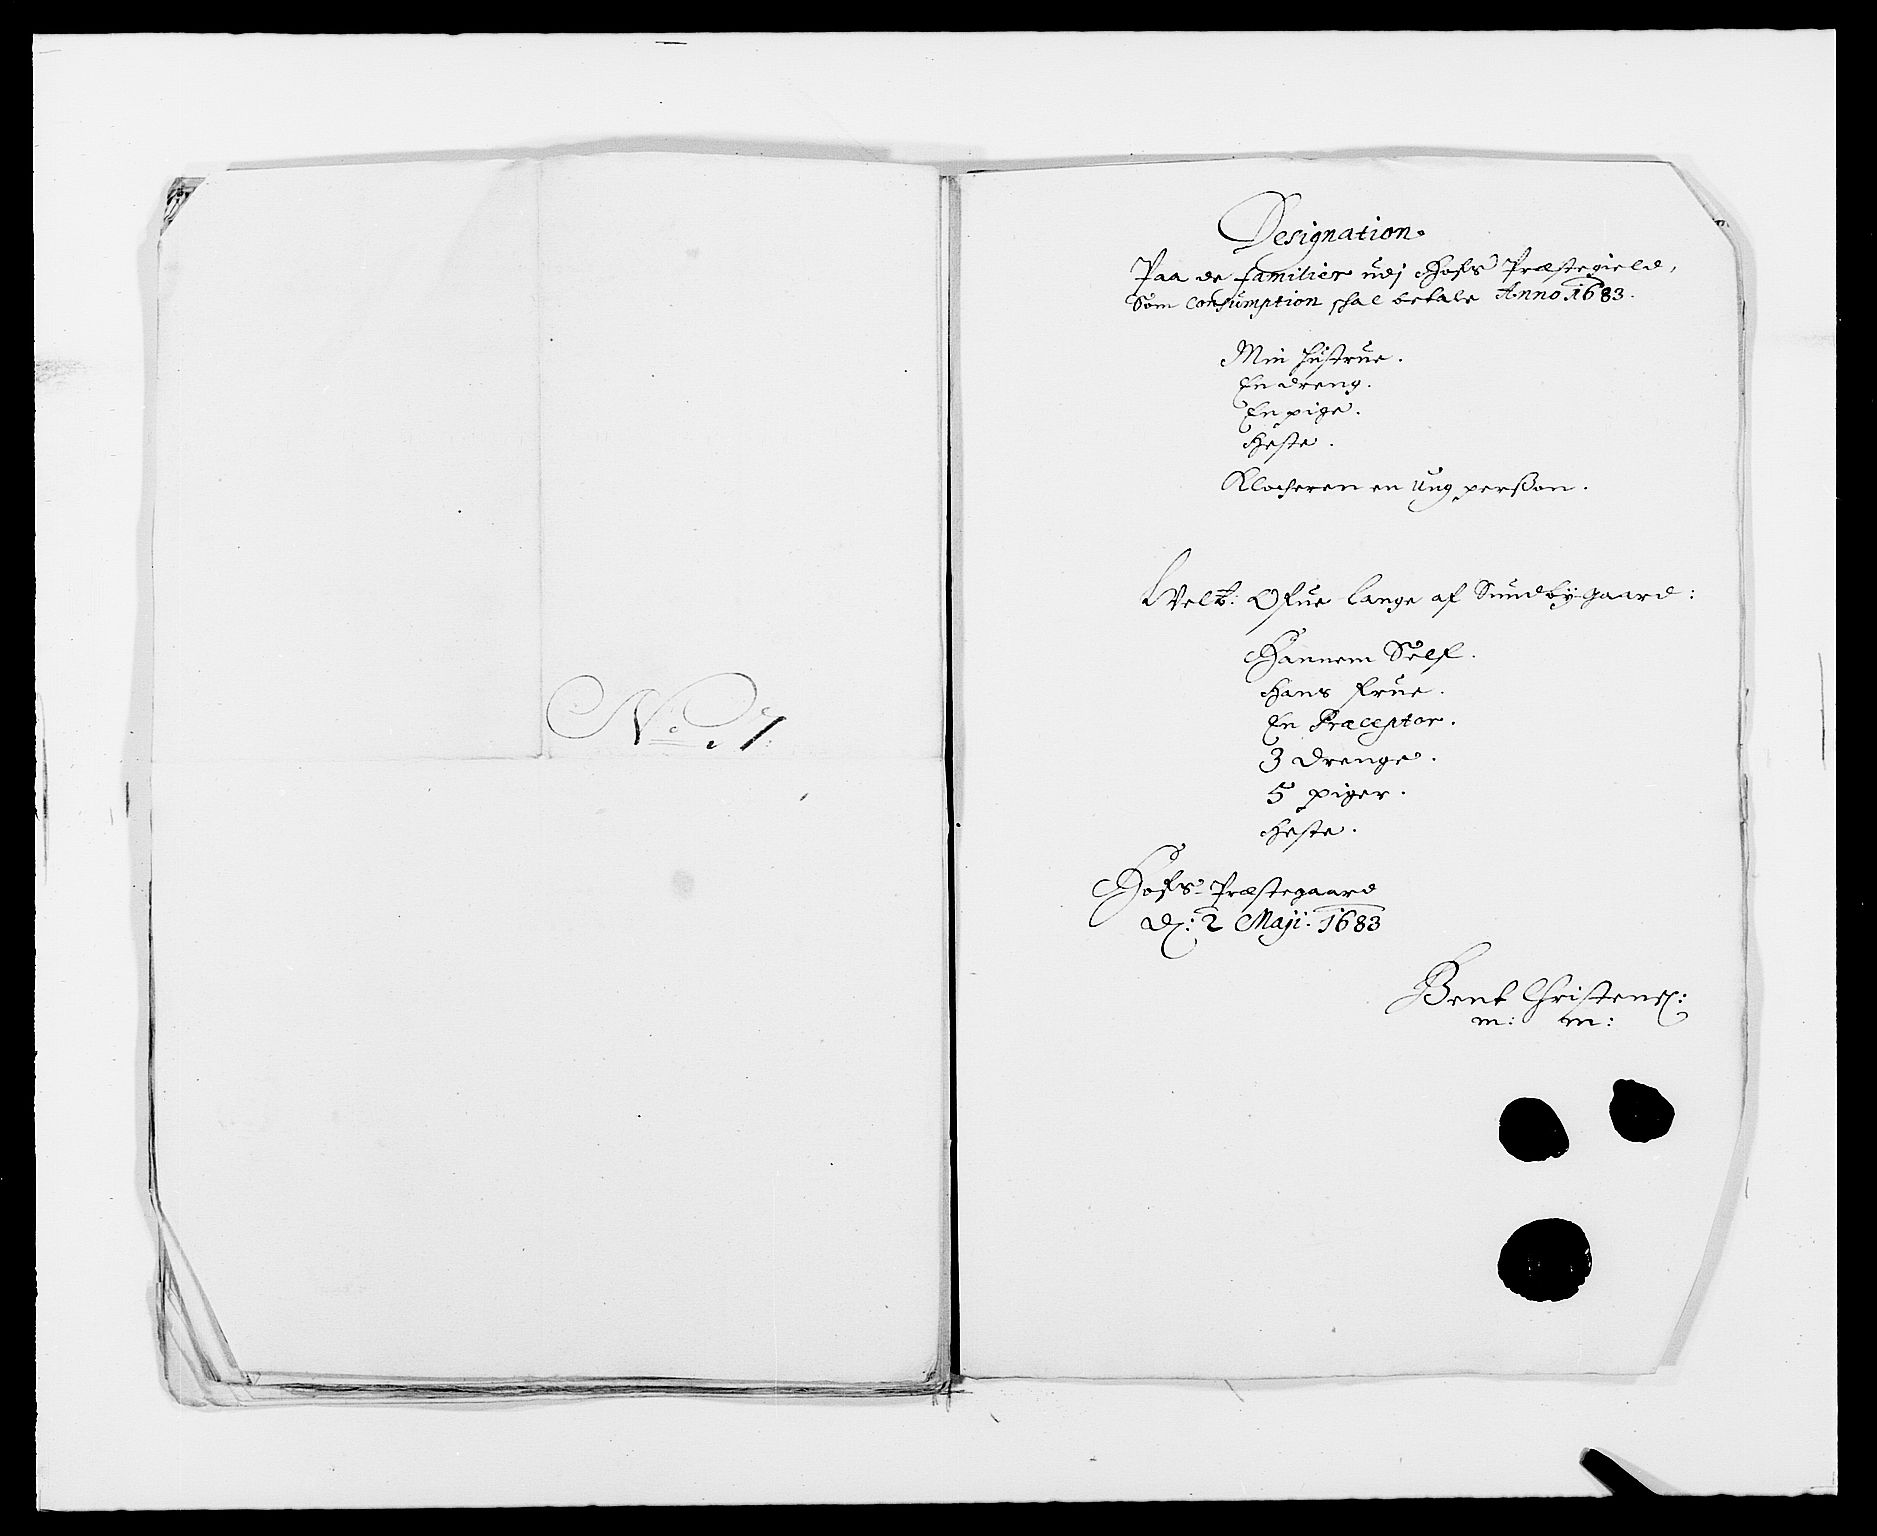 No 7:
Designation
Paa de familier udj Hofs Præstegield,
Som Consumption skal betale Anno 1683.
Min hustrue.
En dreng.
En pige.
Heste.
Klocheren en Ung perßon.
Welb: Ofue Lange af Sundbygaard:
Hannem Self.
Hans frue.
En Præceptor.
3 drenge.
5 piger.
Heste.
Hofs Præstegaard
d: 2 Maji. 1683
Bent Christens:
m: m: